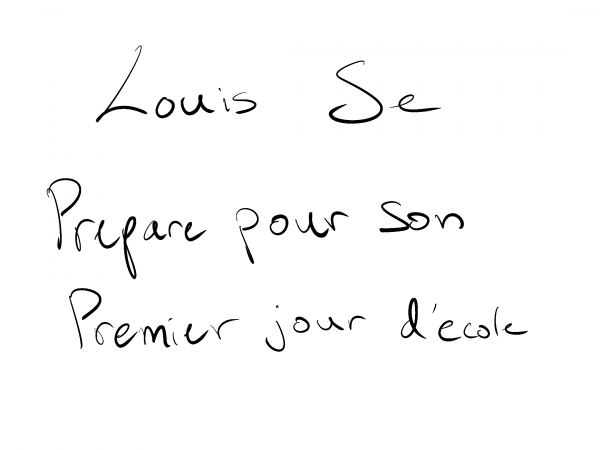 Louis Se
Prepare pour son
Premier jour d'ecole